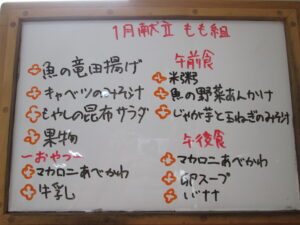 1月献立 もも組
魚の竜田揚げ
キャベツのみそ汁
もやしの昆布サラダ
果物
～おやつ～
マカロニあべかわ
牛乳
午前食
米粥
魚の野菜あんかけ
じゃが芋と玉ねぎのみそ汁
午後食
マカロニあべかわ
卵スープ
バナナ